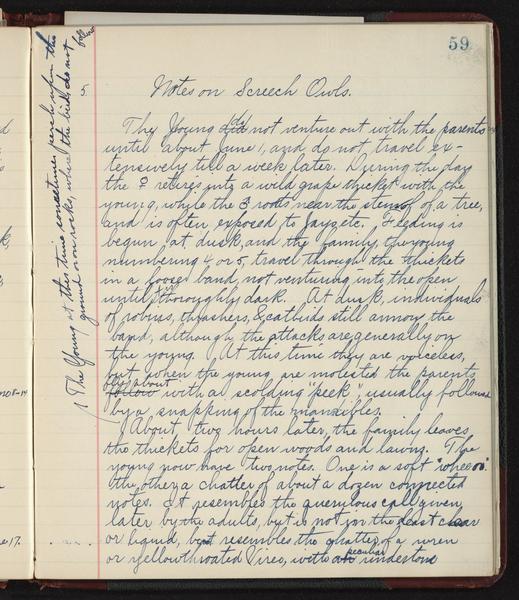 59
5
Notes on Screech Owls.
The Young do not venture out with the parents
until about June 1, and do not travel ex-
tensively till a week later. During the day
the ♀ retires into a wild grape thicket with the
young, while the ♂ roosts near the stem of a tree,
and is often exposed to Jays, etc. Feeding is
begun at dusk, and the family, the young
numbering 4 or 5, travel through the thickets
in a loose band, not venturing into the open
until thoroughly dark. At dusk, individuals
of robins, thrashers, & catbirds still annoy the
band, although the attacks are generally on
the young. At this time they are voiceless,
but when the young are molested the parents
about
follow with a scolding "peek" usually followed
by a snapping of the mandibles.
About two hours later, the family leaves
the thickets for open woods and lawns. The
young now have two notes. One is a soft
the other a chatter of about a dozen connected
notes. It resembles the querulous call given
later by the adults, but is not in the least clear
or liquid, but resembles the chatter of a wren
peculiar
or Yellowthroated Vireo, with an undertone
The Young at this time sometimes perch upon the
ground or on rocks, where the birds do not
follow